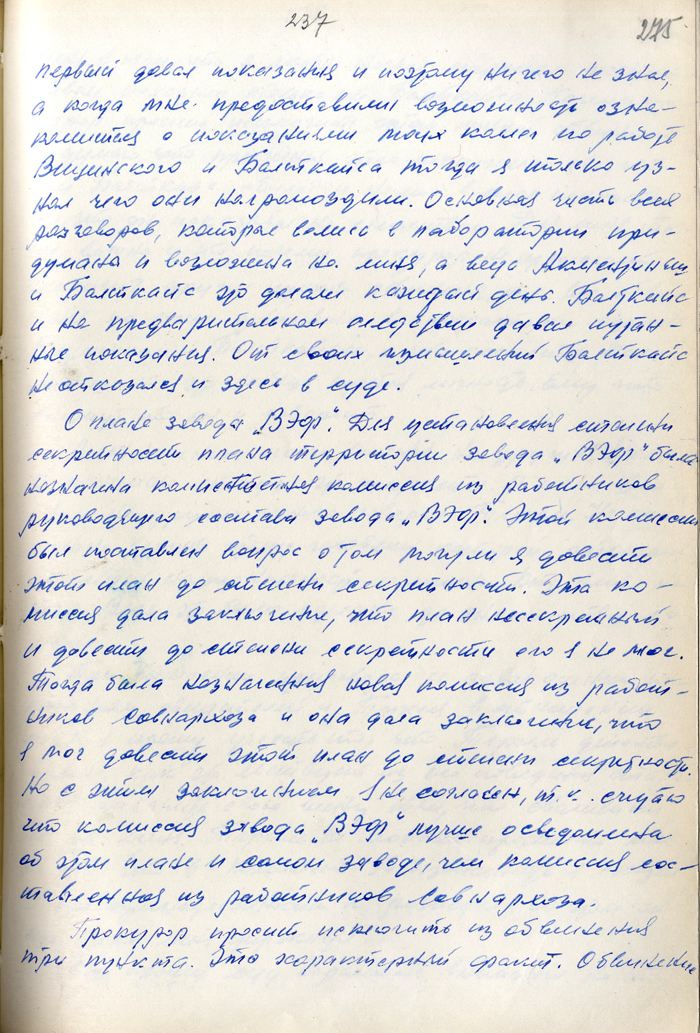 237
275
первый давал показания и поэтому ничего не знал,
а когда мне предоставили возможность озна-
комится с показаниями моих колег по работе
Вищинского и Балткайса тогда я только уз-
нал чего они нагромоздили. Основная часть всех
разговоров, которые велись в лаборатории при-
думана и возложена на меня, а ведь
и Балткайс это делали каждый день. Балткайс
и на предварительном следствии давал путан-
ные показания. От своих измышлений Балткайс
не отказался и здесь в суде.
О плане завода „ВЭФ". Для установления степени
секретности плана территории завода „ВЭФ" была
назначена компетентная комиссия из работников
руководящего состава завода „ВЭФ". Этой комиссии
был поставлен вопрос о том мог ли я довести
этот план до степени секретности. Эта ко-
миссия дала заключение, что план несекретный
и довести до степени секретности его я не мог.
Тогда была назначения новая комиссия из работ-
ников Совнархоза и она дала заключение, что
я мог довести этот план до степени секретности.
Но с этим заключением я не согласен, т.к. считаю
что комиссия завода „ВЭФ" лучше осведомлена
об этом плане и самом заводе, чем комиссия сос-
тавленная из работников Совнархоза.
Прокурор просит исключить из обвинения
три пункта. Это характерный факт. Обвинение